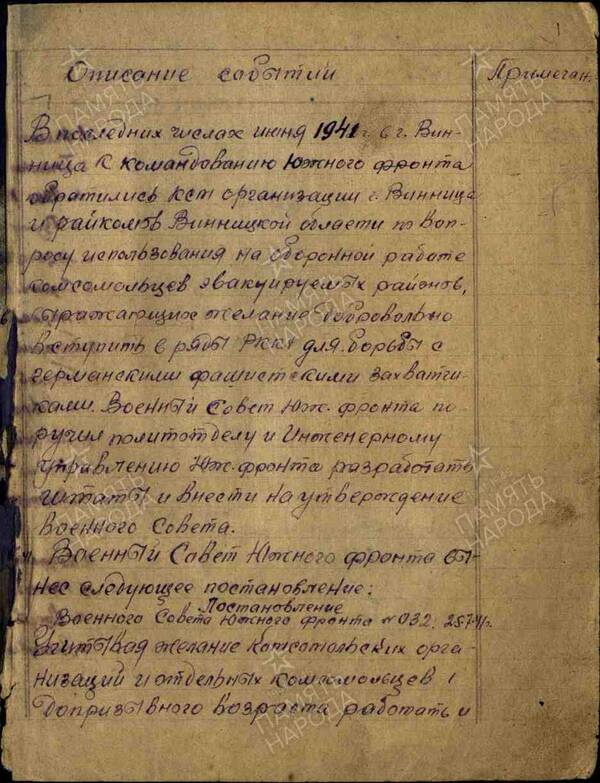 1
Описание событий
Примечан.
В последних числах июня 1941 г. в г. Вин-
ница к командованию Южного фронта
обратились ксм организации г. Винница
и райкомов Винницкой области по воп-
росу использования на оборонной работе
комсомольцев эвакуируемых районов,
выражающих желание добровольно
вступить в ряды РККА для борьбы с
германскими фашистскими захватчи-
ками. Военный Совет Юж. фронта по-
ручил политотделу и Инженерному
управлению Юж. фронта разработать
штаты и внести на утверждение
Военного Совета.
Военный Совет Южного фронта вы-
нес следующее постановление:
Постановление
Военного Совета Южного фронта №032
Учитывая желание комсомольских орга-
низаций и отдельных комсомольцев
допризывного возраста работать и
ПАМЯТЬ НАРОДА